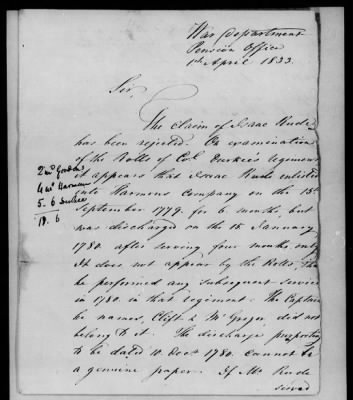 War Department
Pension Office
1st April 1833.
Sir,
The Claim of Isaac Rude
has been rejected. On examination
of the Rolls of Col Durkee's Regiment
it appears that Isaac Rude enlisted
into Harmons Company on the 15th
September 1779, for 6 months, but
was discharged on the 15 January
1780. after serving four months only
It does not appear by the Rolls, that
he performed any subsequent service
in 1780. in that regiment. The Captains
he names, Clift & McGregor did not
belong to it. The discharge purporting
to be dated 10 Decr 1780. cannot be
a genuine paper. If Mr Rude
served
4 mos Harmon